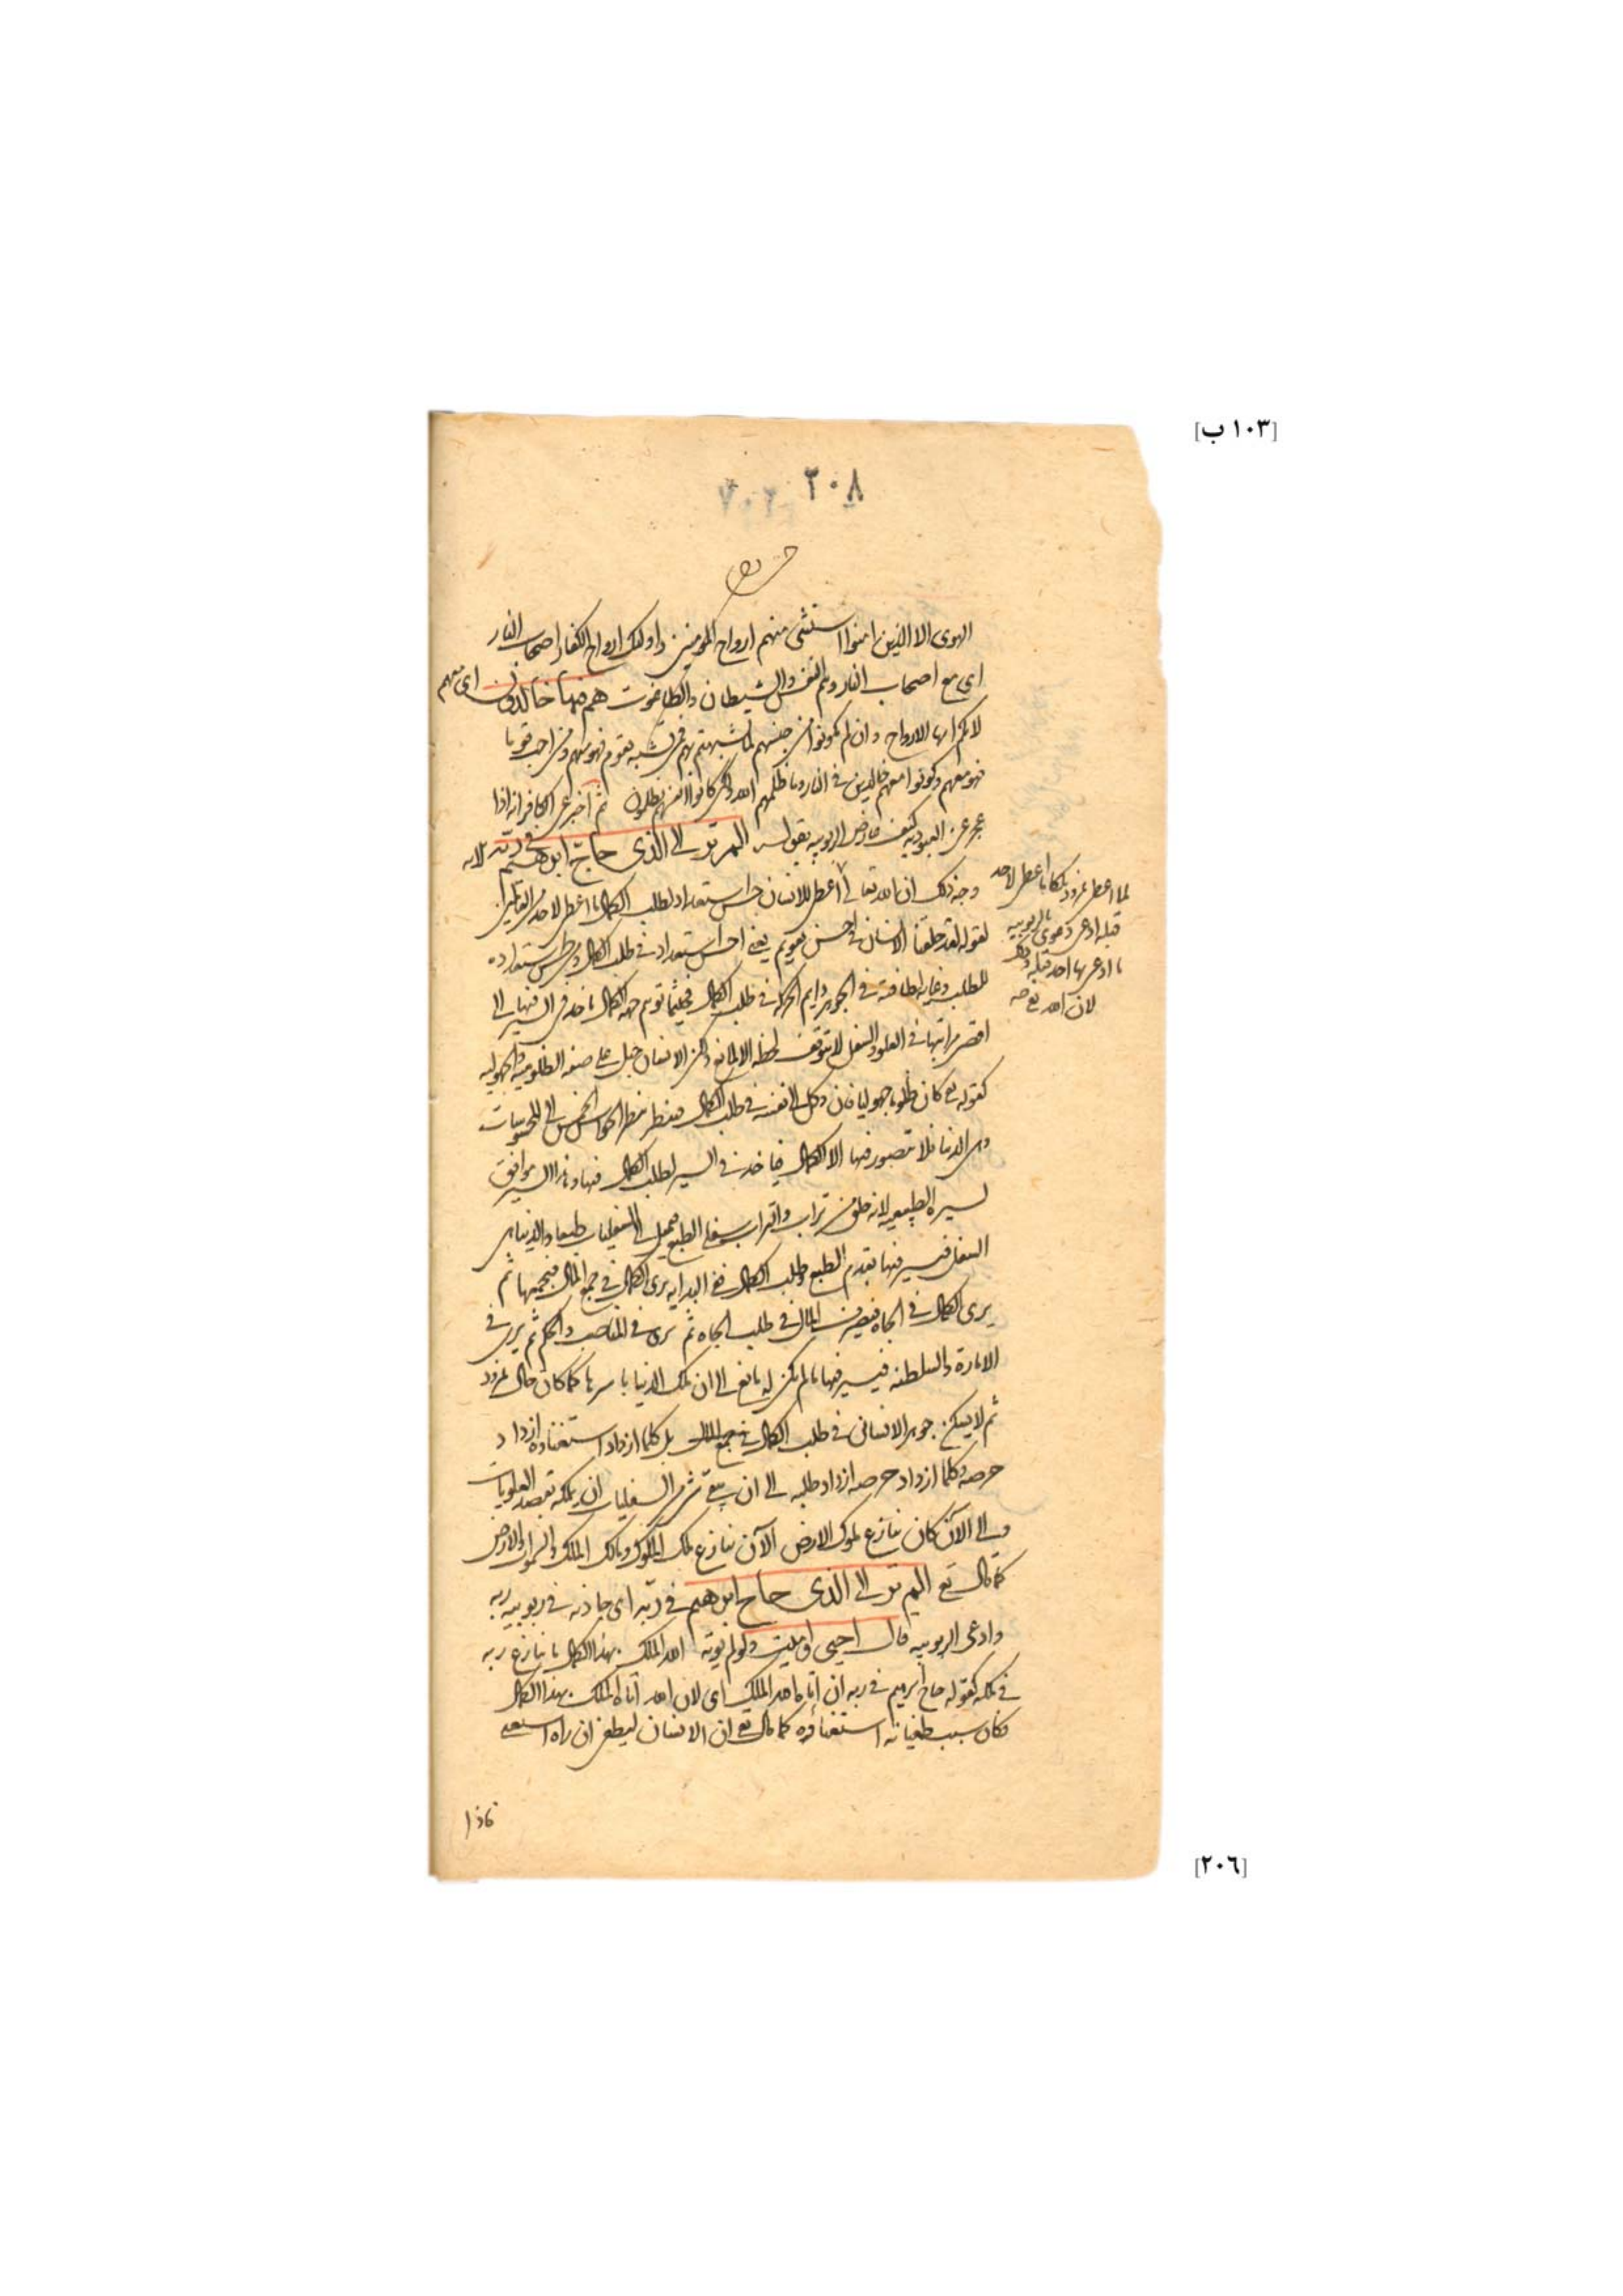 [١٠٣ ب]
٢٠٨
الهوى الا الذين امنوا استثنى منهم ارواح المومنين واولئك ارواح الكفار اصحاب النار
اى مع اصحاب النار وهم النفس والشيطان والطاغوت هم فيها خالدون اى معهم
لانكم ايها الارواح وان لم تكونوا من جنسهم لما شبهتم بهم فمن تشبه بقوم فهو منهم ومن احب قوما
فهو معهم وكونوا معهم خالدين فى النار وما ظلمهم الله ولكن كانوا انفسهم يظلمون ثم اخبر عن الكافر انه اذا
عجز عن العبودية كيف عارض الربوبية بقوله الم تر الى الذى حاج ابرهيم فى ربه الاية
وجه ذلك ان الله تعالى اعطى للانسان حسن استعداد لطلب الكمال ما اعطى لاحد من العالمين
لقوله لقد خلقنا الانسان فى احسن تقويم يعنى احسن استعداد فى طلب الكمال ومن حسن استعداده
للطلب وغاية لطافته فى الجوهر دايم الحركة فى طلب الكمال فحيثما توهم جهة الكمال ياخذ فى السير فيها الى
اقصى مراتبها فى العلو والسفل لا يتوقف لحظة الا لمانع ولكن الانسان جبل على صفة الظلومية والجهولية
كقوله تع كان ظلوما جهولا فان وكل الى نفسه فى طلب الكمال فينظر بنظر الحواس الخمس الى المحسوسات
وهى الدنيا فلا يتصور فيها الا الكمال فياخذ فى السير لطلب الكمال فيها وهذا السير موافق
لسيره الطبيعى لانه خلق من تراب والتراب سفلى الطبع فيميل الى السفليات طبعا والدنيا هى
السفل فيسير فيها بقدم الطبع وطلب الكمال ففى البداية يرى الكمال فى جمع المال فيجمعها ثم
يرى الكمال فى الجاه فيصرف المال فى طلب الجاه ثم يرى فى المناصب والحكم ثم يرى فى
الامارة والسلطنة فيسير فيها ما لم يكن له مانع الى ان يملك الدنيا باسرها كما كان حال نمرود
ثم لا يسكن جوهر الانسانى فى طلب الكمال بل كلما ازداد استغناؤه ازداد
حرصه وكلما ازداد حرصه ازداد طلبه الى ان يبقى شئ من السفليات ان يملكه يقصد العلويات
والى الآن كان ينازع ملوك الارض الآن ينازع ملك الملوك ومالك الملك والسموات والارض
كما قال تع الم تر الى الذى حاج ابرهيم فى ربه اى جاذبه فى ربوبية ربه
وادعى الربوبية قال احيى واميت ولو لم يؤته الله الملك بهذا الكمال ما ينازع ربه
فى ملكه كقوله حاج ابرهيم فى ربه ان اتاه الله الملك اى لان الله اتاه الملك بهذا الكمال
فكان سبب طغيانه استغناؤه كما قال تع ان الانسان ليطغى ان راه استغنى
لما اعطى نمرود ملكا ما اعطى لاحد
قبله ادعى دعوى الربوبية
ما ادعى بها احد قبله وذلك
لان الله تع
فاذا
[٢٠٦]